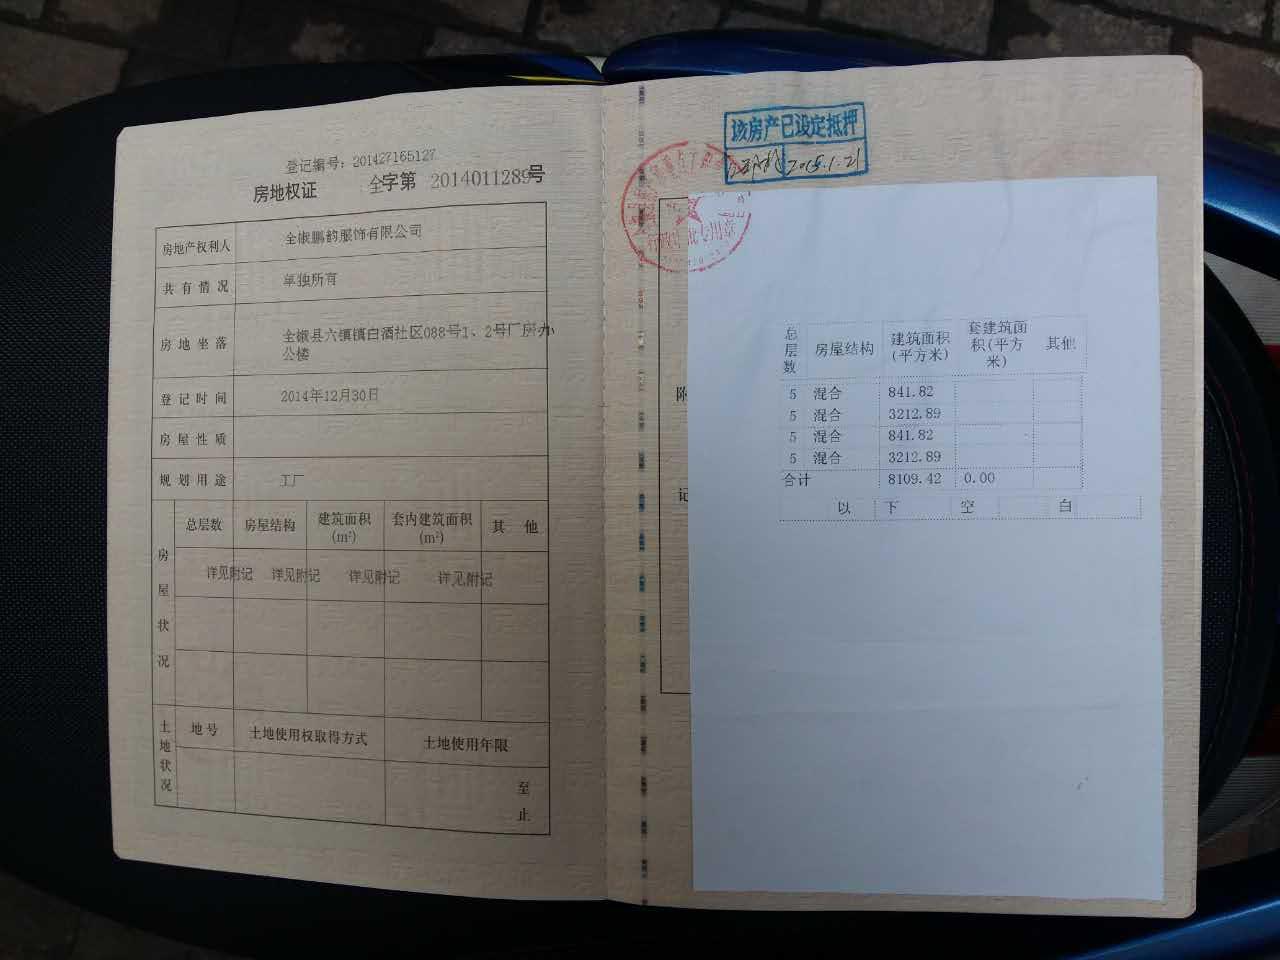 登记编号：201427165127
房地权证 全字第 2014011289号
房地产权利人 全椒鹏韵服饰有限公司
共有情况 单独所有
房地坐落 全椒县六镇镇白酒社区088号1、2号厂房办
公楼
登记时间 2014年12月30日
房屋性质
规划用途 工厂
房屋状况
总层数 房屋结构 建筑面积(m²) 套内建筑面积(m²) 其他
详见附记 详见附记 详见附记 详见附记
土地状况
地号 土地使用权取得方式 土地使用年限
至
止
该房产已设定抵押
2015.1.21
专用章
附
记
总层数 房屋结构 建筑面积(平方米) 套建筑面积(平方米) 其他
5 混合 841.82
5 混合 3212.89
5 混合 841.82
5 混合 3212.89
合计 8109.42 0.00
以 下 空 白